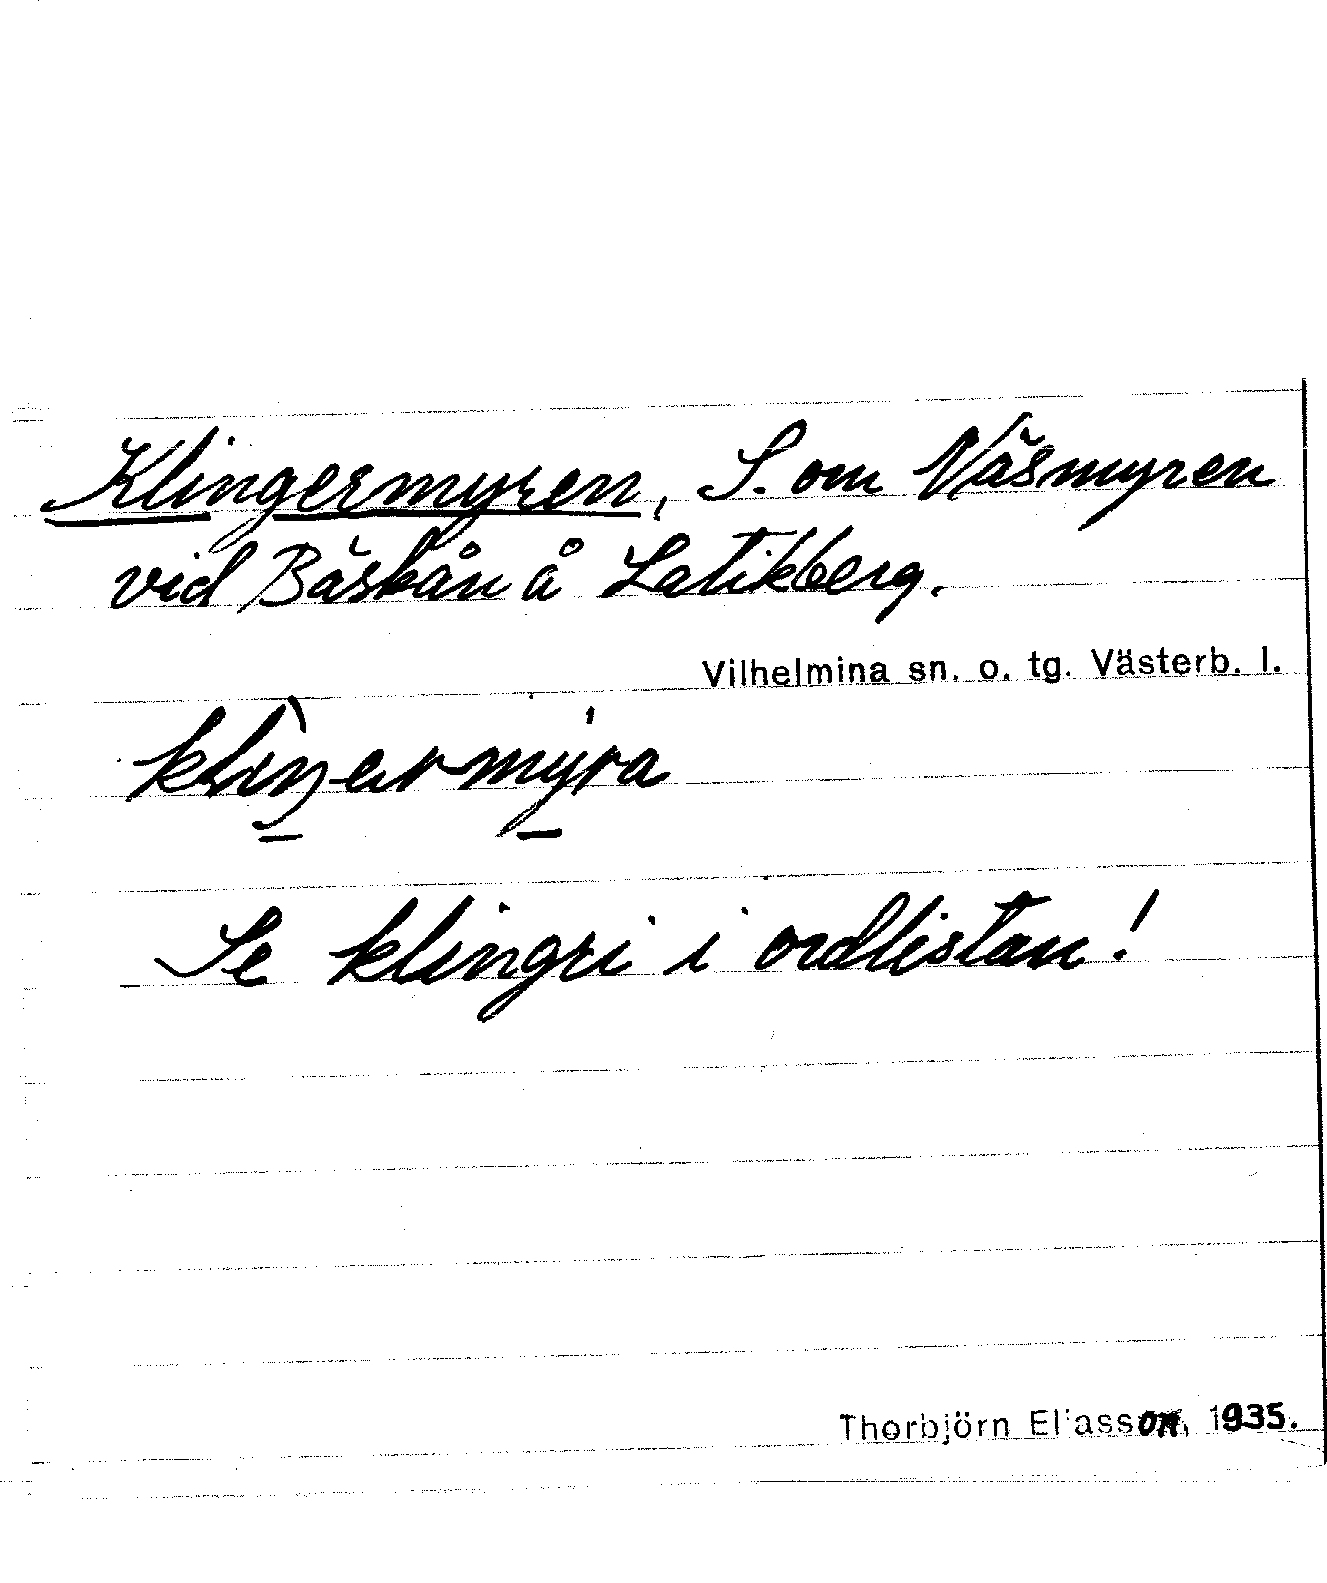 Klingermyren, S. om Näsmyren
vid Bäskån å Latikberg.
Vilhelmina sn. o. tg. Västerb. l.
kliŋermyra
Se klingri i ordlistan!
Thorbjörn Eliasson, 1935.